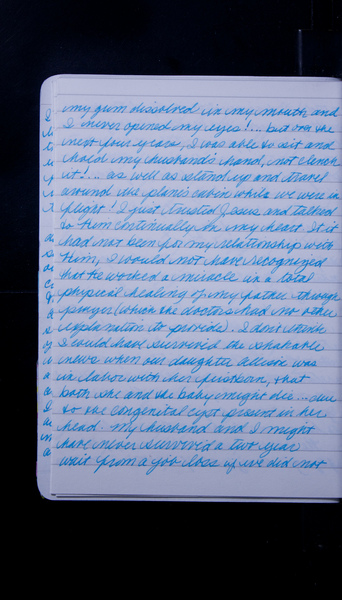 my gum dissolved in my mouth and
I never opened my eyes!... but for the
next four years, I was able to sit and
hold my husband's hand, not clench
it!... as well as stand up and travel
around the plane's cabin while we were in
flight! I just trusted Jesus and talked
to Him continually in my heart. If it
had not been for my relationship with
Him, I would not have recognized
that He worked a miracle in a total
physical healing of my father through
prayer (which the doctors had no other
explanation to provide). I don't think
I would have survived the shakable
news when our daughter Allison was
in labor with her firstborn, that
both she and the baby might die... due
to the congenital cyst present in her
head. My husband and I might
have never survived a two year
wait from a job loss if we did not